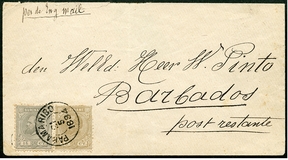 per de Eng. mail
den Weled. Heer W. Pinto
Barbados
post restante
PARAMARIBO